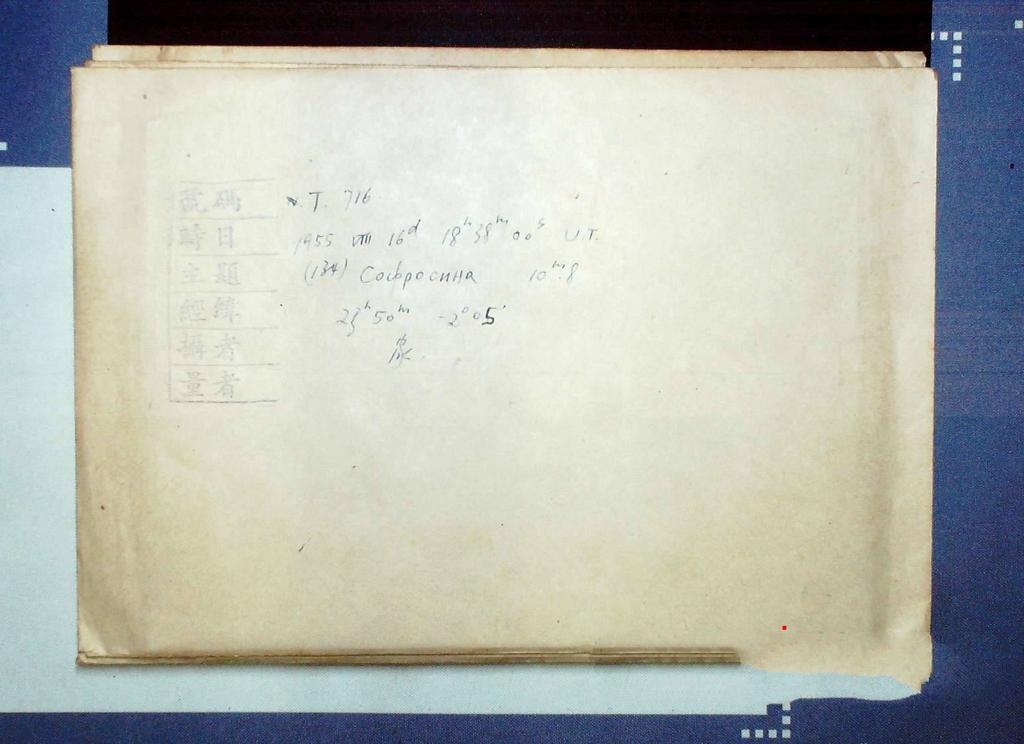 號碼 N.T. 716
時日 1955 VIII 16ᵈ 18ʰ38ᵐ00ˢ U.T.
主題 (134) Софросина 10ᵐ.8
經緯 23ʰ50ᵐ -2°05'
攝者
量者